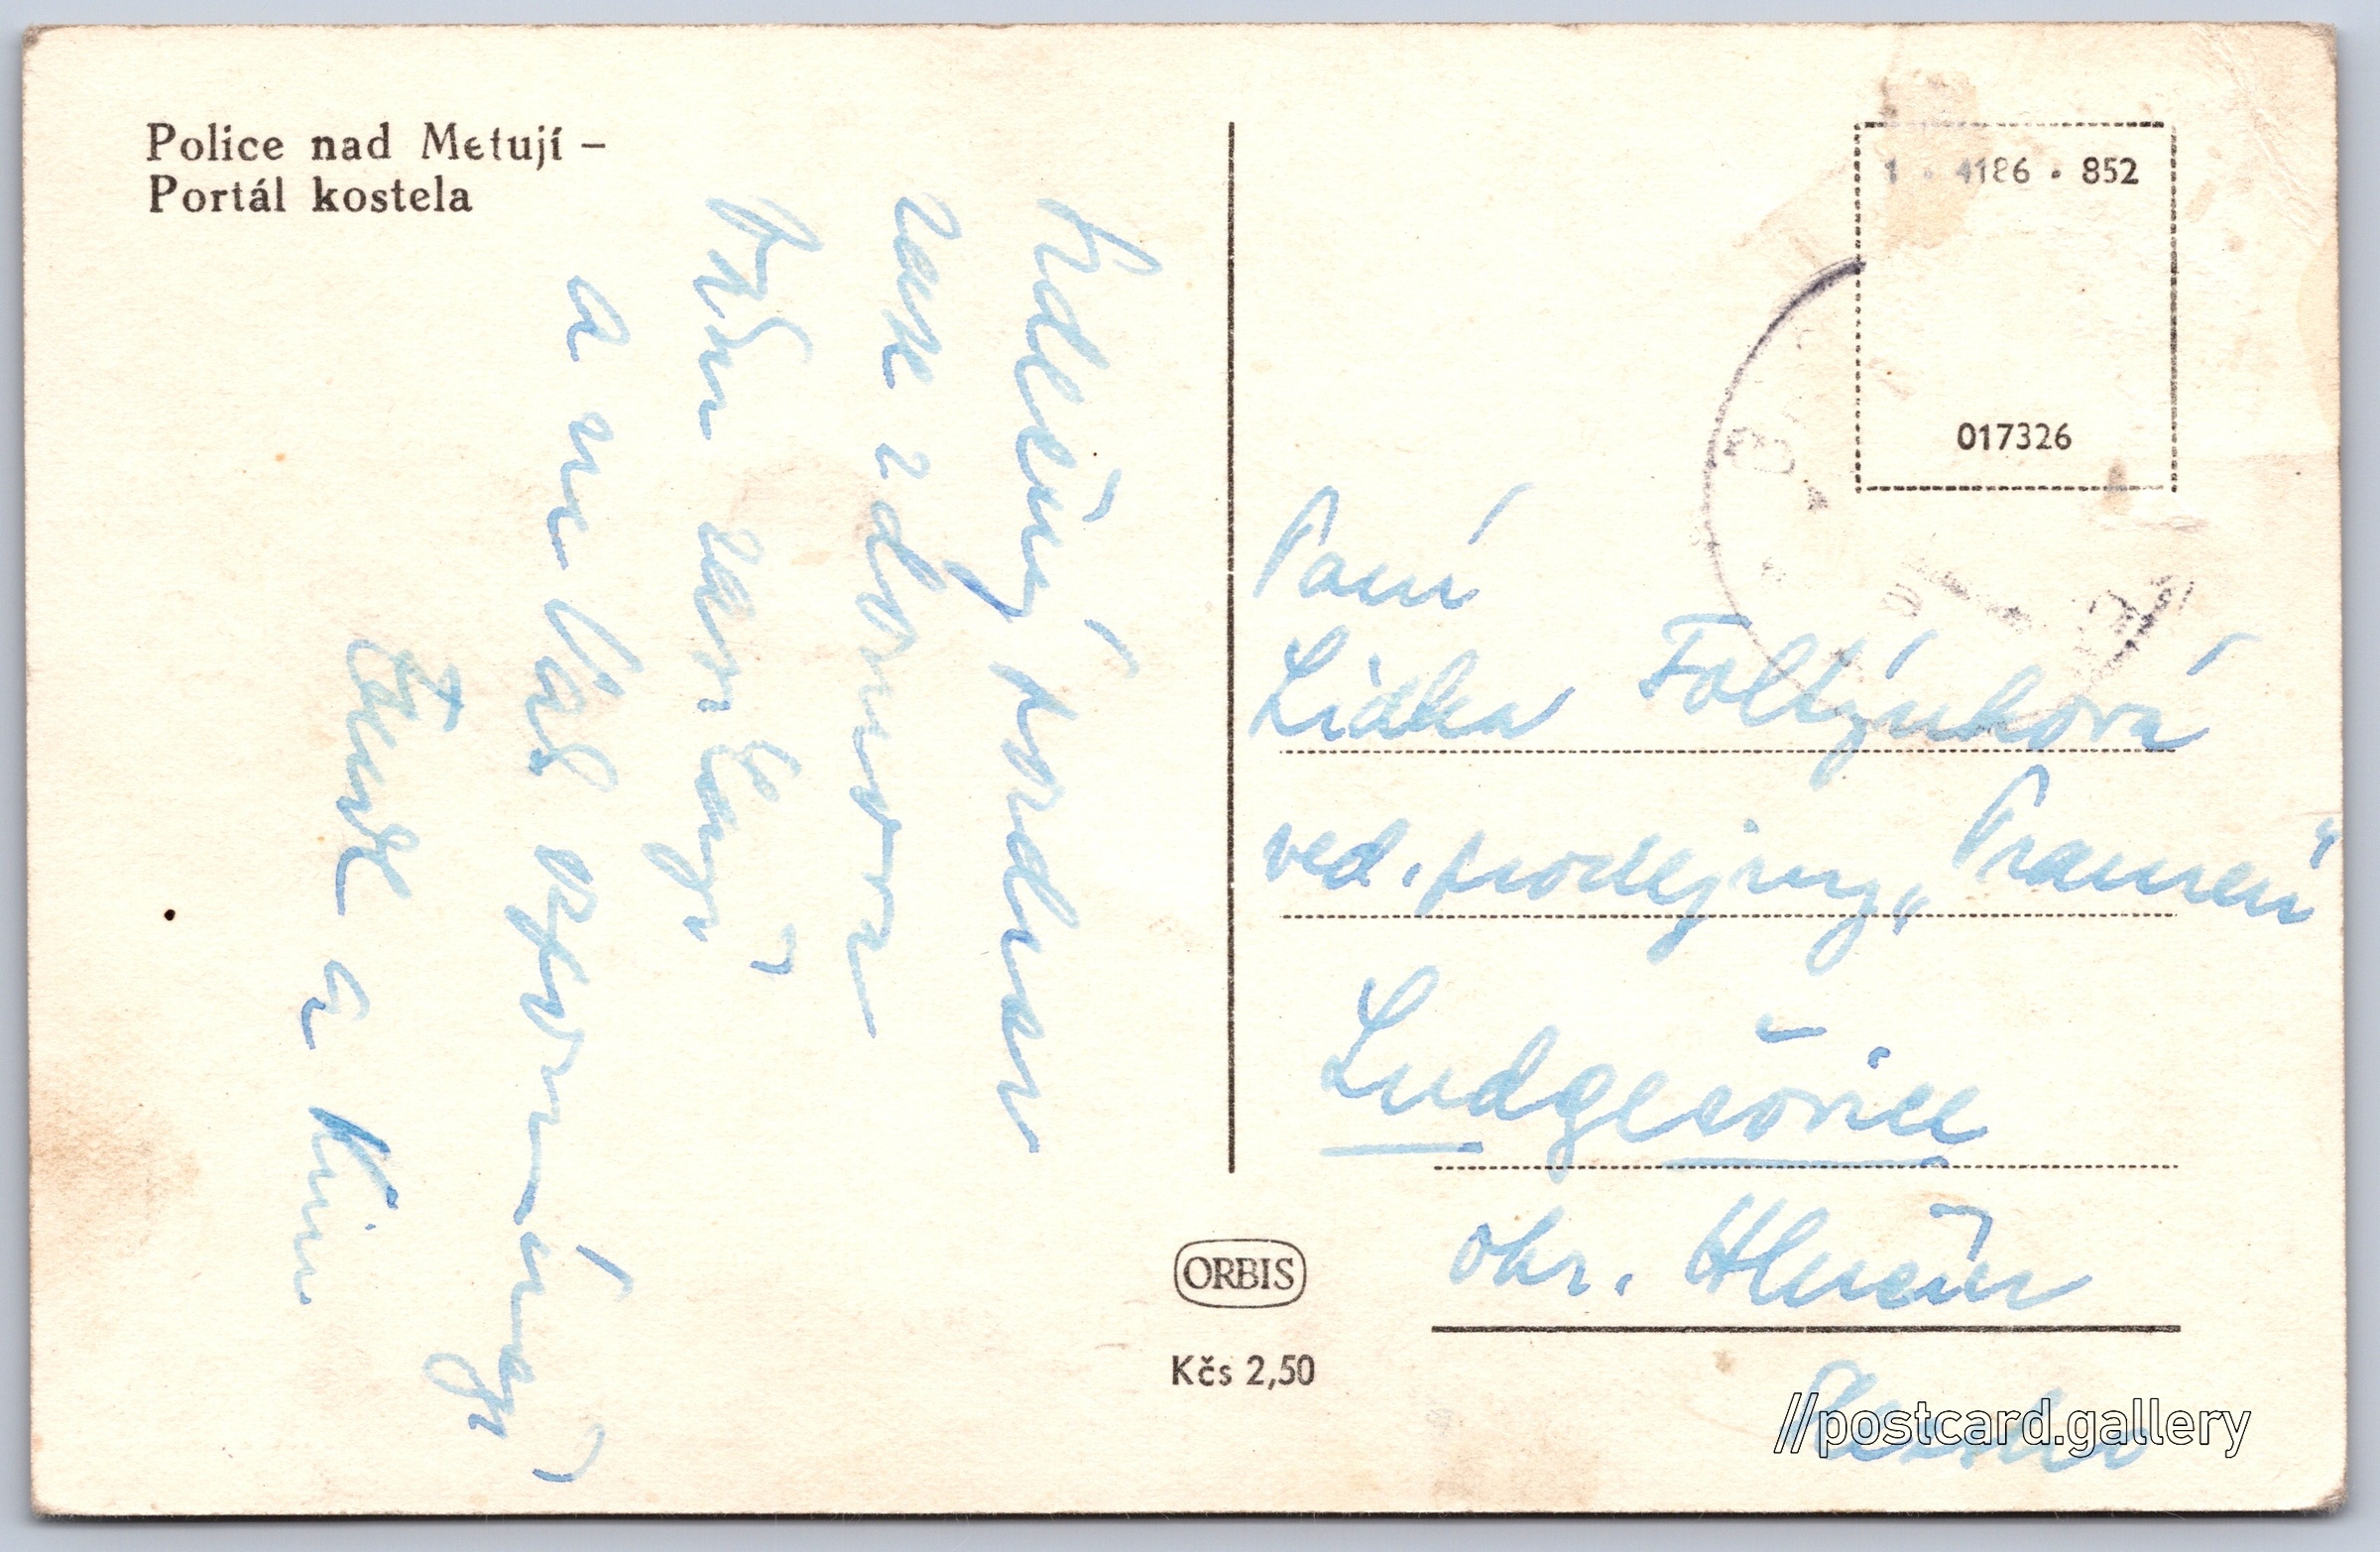 Police nad Metují –
Portál kostela
Srdečný pozdrav
zase z domova
Vám zasílají
a na Vás vzpomínají
a
1 · 4186 · 852
017326
Paní
Lidka Foltýnková
ved. prodejny „Pramen“
Ludgeřovice
okr. Hlučín
Slezsko
ORBIS
Kčs 2,50
//postcard.gallery